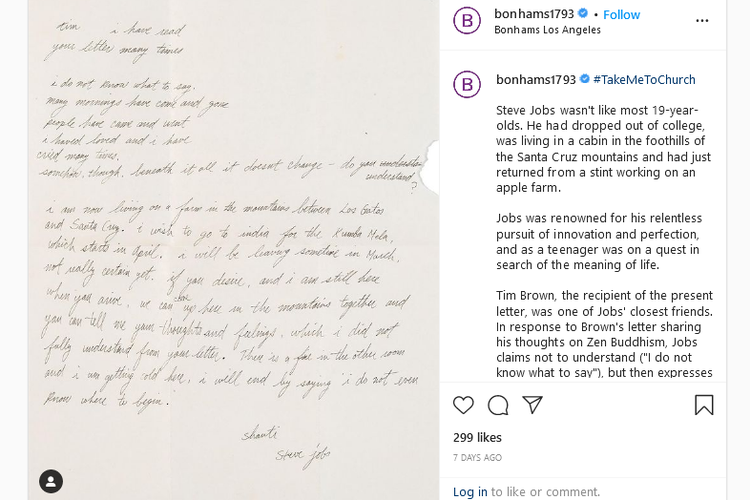 tim i have read
your letter many times
i do not know what to say.
many mornings have come and gone
people have came and went
i haved loved and i have
cried many times.
somehow, though, beneath it all it doesnt change – do you understan
understand?
i am now living on a farm in the mountains between Los Gatos
and Santa Cruz. i wish to go to india for the Kumba Mela,
which starts in April. i will be leaving sometime in March,
not really certain yet. if you desire, and i am still here
when you arive, we can up here in the mountains together and
you can tell me your thoughts and feelings, which i did not
fully understand from your letter. There is a fire in the other room
and i am getting cold here, i will end by saying i do not even
know where to begin.
shanti
steve jobs
bonhams1793 • Follow
Bonhams Los Angeles
bonhams1793 #TakeMeToChurch
Steve Jobs wasn't like most 19-year-
olds. He had dropped out of college,
was living in a cabin in the foothills of
the Santa Cruz mountains and had just
returned from a stint working on an
apple farm.
Jobs was renowned for his relentless
pursuit of innovation and perfection,
and as a teenager was on a quest in
search of the meaning of life.
Tim Brown, the recipient of the present
letter, was one of Jobs' closest friends.
In response to Brown's letter sharing
his thoughts on Zen Buddhism, Jobs
claims not to understand ("I do not
know what to say"), but then expresses
299 likes
7 DAYS AGO
Log in to like or comment.